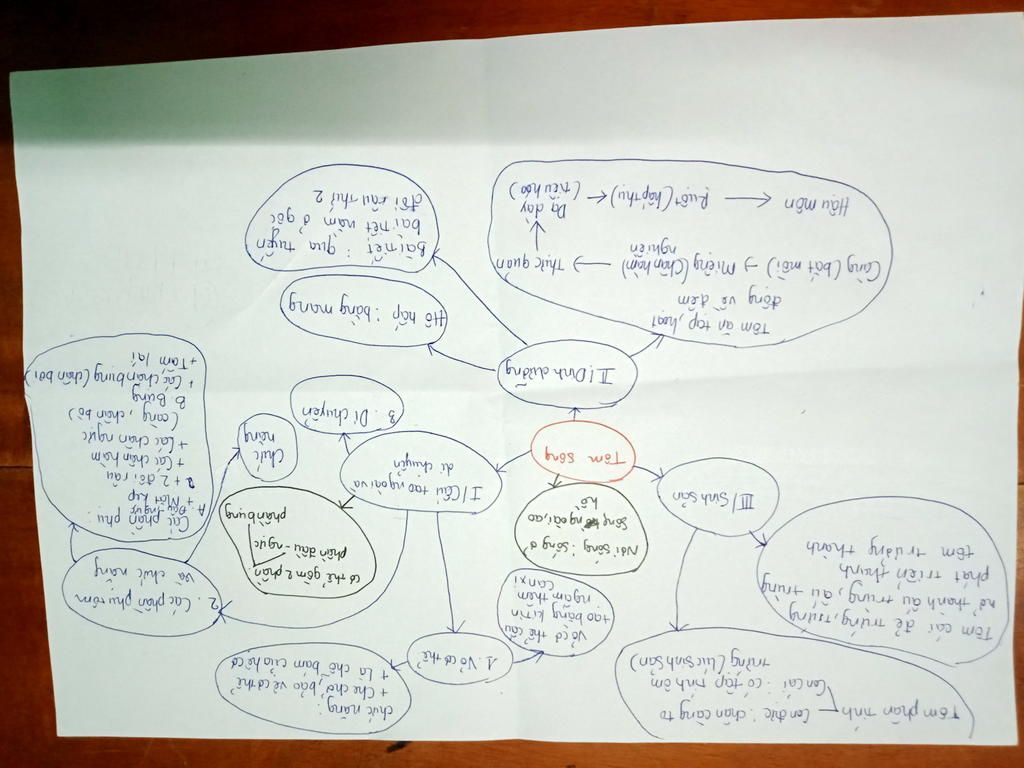 Tôm phân tính
Con đực: chân càng to
Con cái: có tập tính ôm
trứng (lúc sinh sản)
Tôm cái đẻ trứng, trứng
nở thành ấu trùng, ấu trùng
phát triển thành
tôm trưởng thành
III/ Sinh sản
Tôm sông
Nơi sống: sống ở
sông ngòi, ao
hồ
I/ Cấu tạo ngoài và
di chuyển
1. Vỏ cơ thể
Vỏ cơ thể cấu
tạo bằng kitin
ngấm thêm
canxi
chức năng:
+ Che chở, bảo vệ cơ thể
+ Là chỗ bám của hệ cơ
Cơ thể gồm 2 phần
phần đầu - ngực
phần bụng
2. Các phần phụ tôm
và chức năng
Các phần phụ:
A. Đầu - ngực
+ Mắt kép
+ 2 đôi râu
+ Các chân hàm
+ Các chân ngực
(càng, chân bò)
B. Bụng
+ Các chân bụng (chân bơi)
+ Tấm lái
Chức
năng
3. Di chuyển
II/ Dinh dưỡng
Tôm ăn tạp, hoạt
động về đêm
Càng (bắt mồi) → Miệng (chân hàm) → Thực quản
nghiền
Dạ dày
(tiêu hoá)
Ruột (hấp thụ)
Hậu môn
Hô hấp: bằng mang
Bài tiết: qua tuyến
bài tiết nằm ở gốc
đôi râu thứ 2